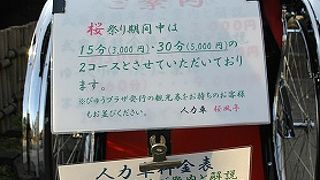 ご案内
桜祭り期間中は
15分(3,000円)・30分(5,000円)の
2コースとさせていただいており
ます。
※びゅうプラザ発行の観光券をお持ちのお客様
もお並びください。
人力車 桜風亭
人力車料金表
案内と解説